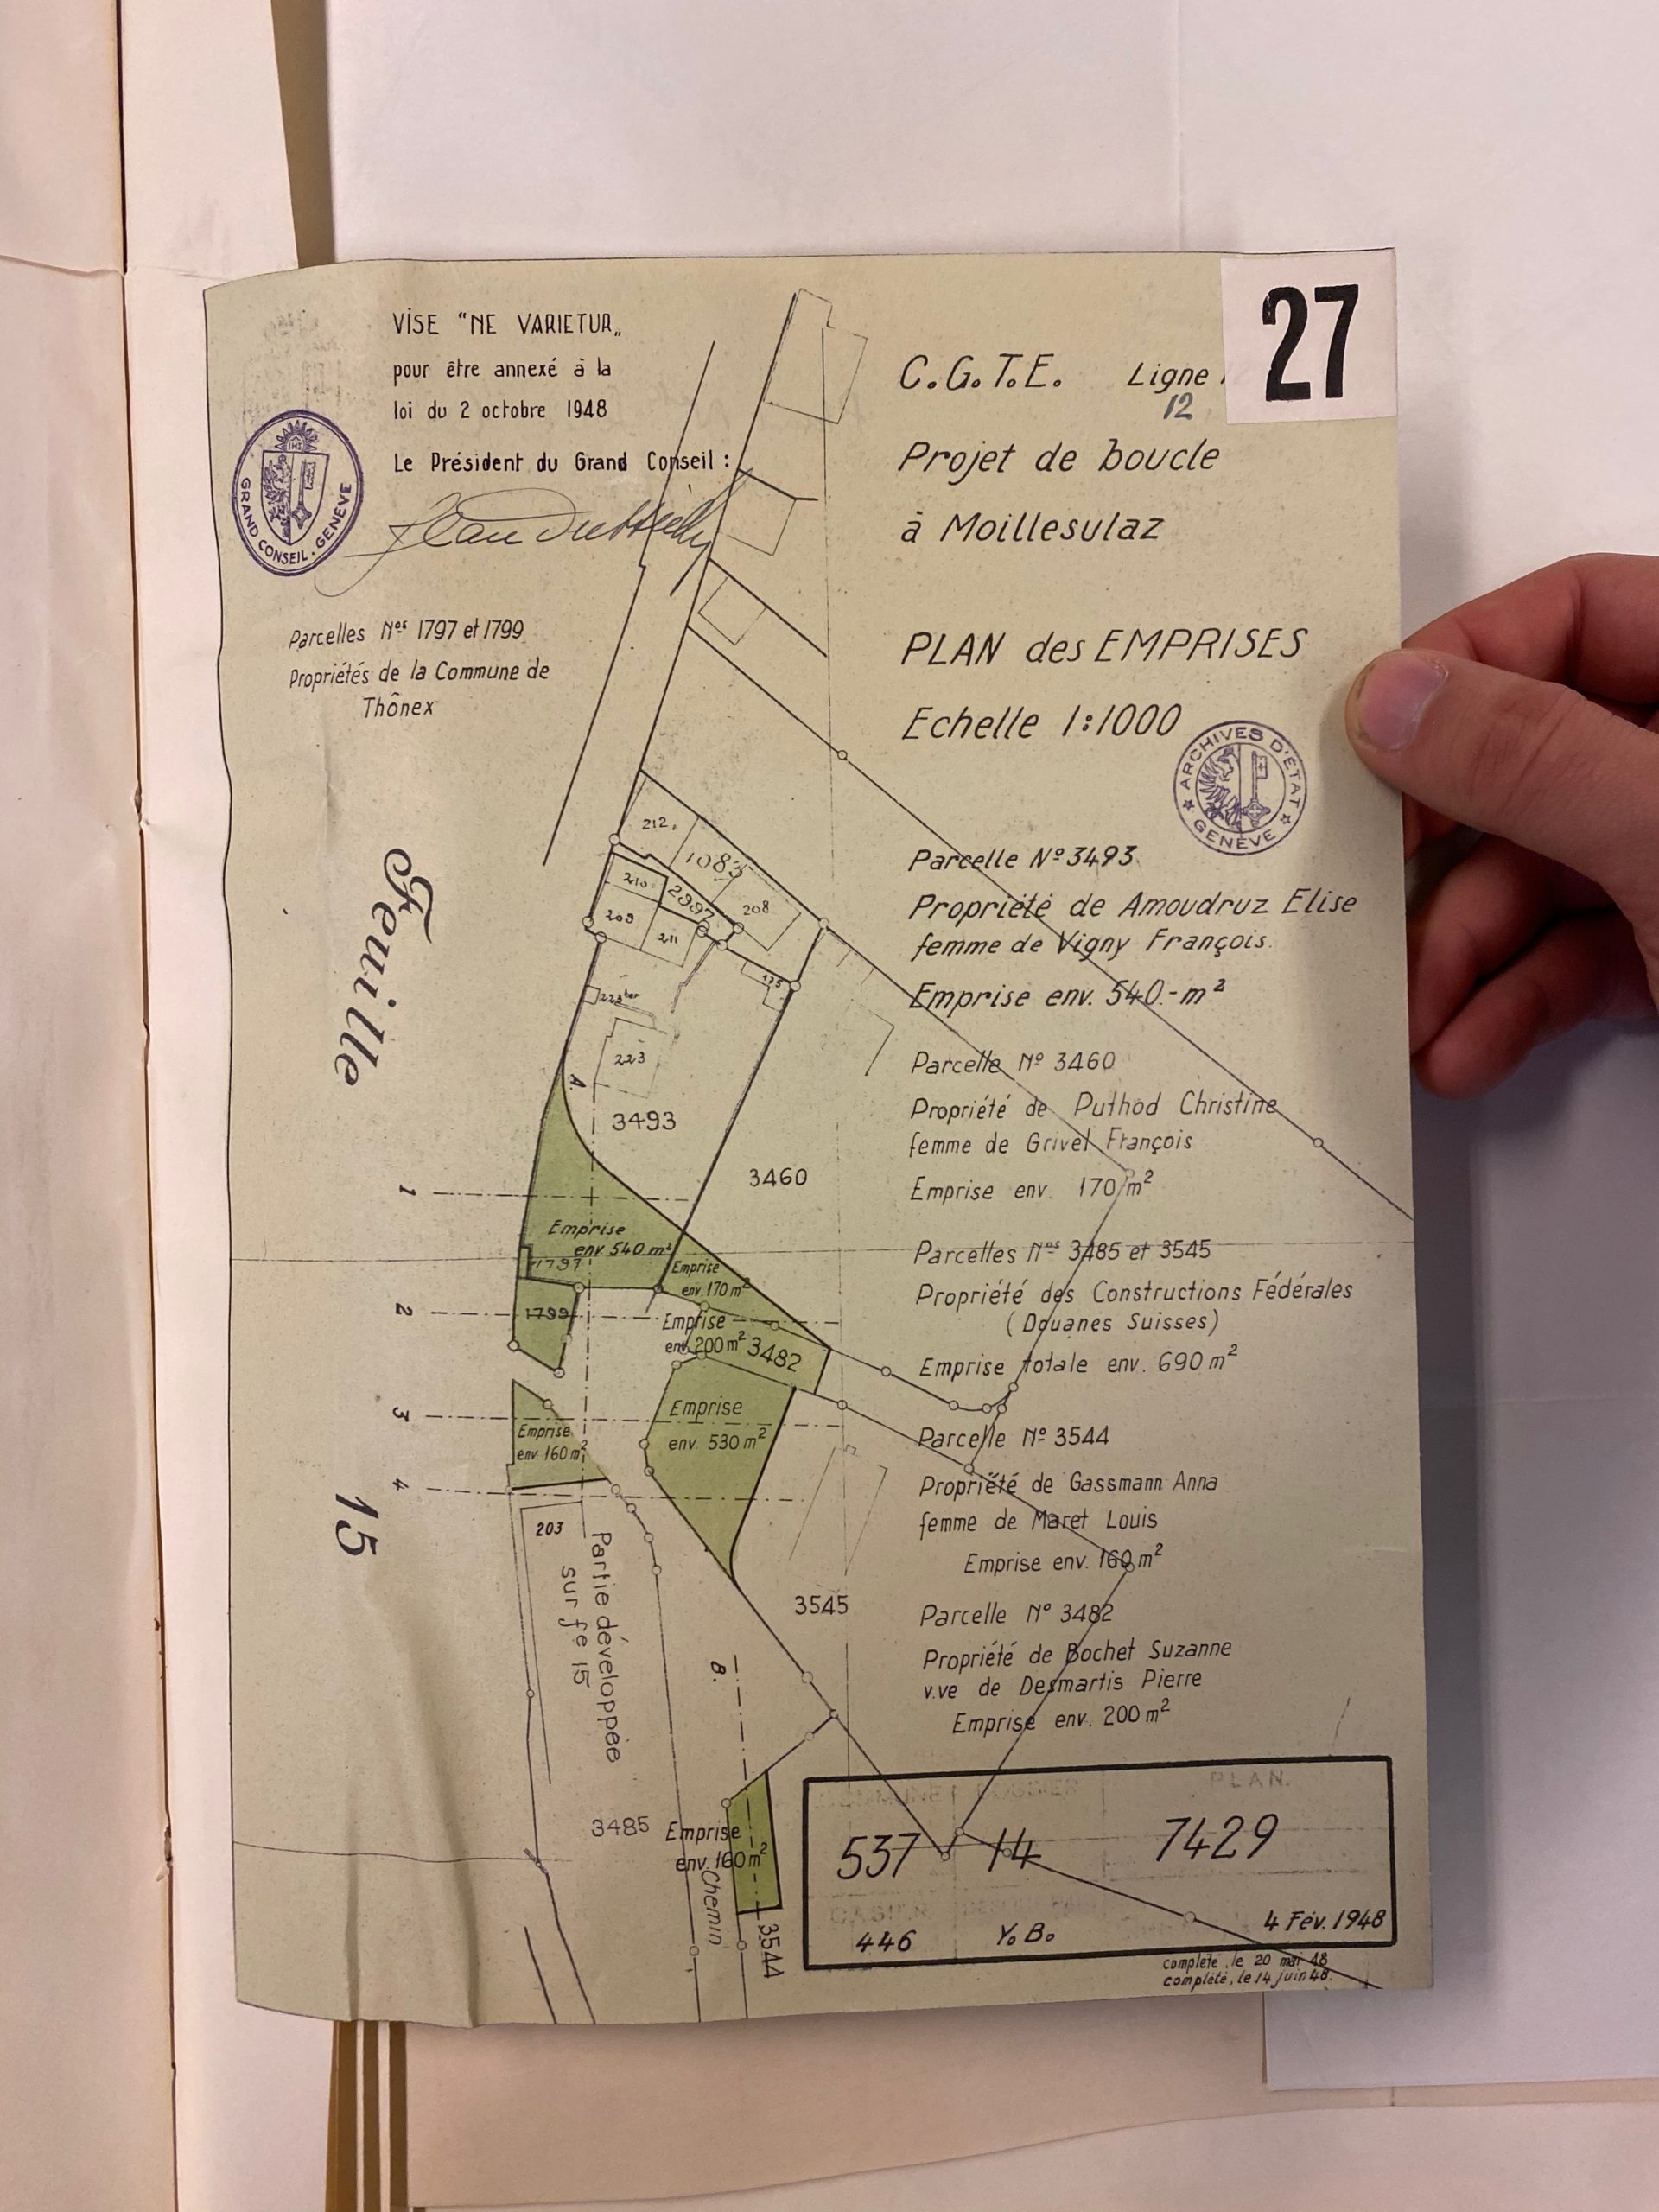 27
VISE "NE VARIETUR„
pour être annexé à la
loi du 2 octobre 1948
Le Président du Grand Conseil :
GRAND CONSEIL . GENÈVE
Parcelles Nos 1797 et 1799
Propriétés de la Commune de
Thônex
C.G.T.E. Ligne
12
Projet de boucle
à Moillesulaz
PLAN des EMPRISES
Echelle 1:1000
ARCHIVES D'ÉTAT
GENÈVE
Parcelle No 3493
Propriété de Amoudruz Elise
femme de Vigny François.
Emprise env. 540.- m²
Parcelle No 3460
Propriété de Puthod Christine
femme de Grivel François
Emprise env. 170 m²
Parcelles Nos 3485 et 3545
Propriété des Constructions Fédérales
(Douanes Suisses)
Emprise totale env. 690 m²
Parcelle No 3544
Propriété de Gassmann Anna
femme de Maret Louis
Emprise env. 160 m²
Parcelle No 3482
Propriété de Bochet Suzanne
v.ve de Desmartis Pierre
Emprise env. 200 m²
Feuille
15
212
1083
210
2997
208
209
211
175
223 ter
223
A.
3493
3460
1
Emprise
env. 540 m²
1797
Emprise
env. 170 m²
2
1799
Emprise
env. 200 m²
3482
3
Emprise
env. 530 m²
Emprise
env. 160 m²
4
203
Partie développée
sur fe 15
3545
B.
3485
Emprise
env. 160 m²
Chemin
3544
COMMUNE DOSSIER PLAN.
537 14 7429
CASIER
446 Y.B. 4 Fév. 1948
complété, le 20 mai 48
complété, le 14 juin 48.